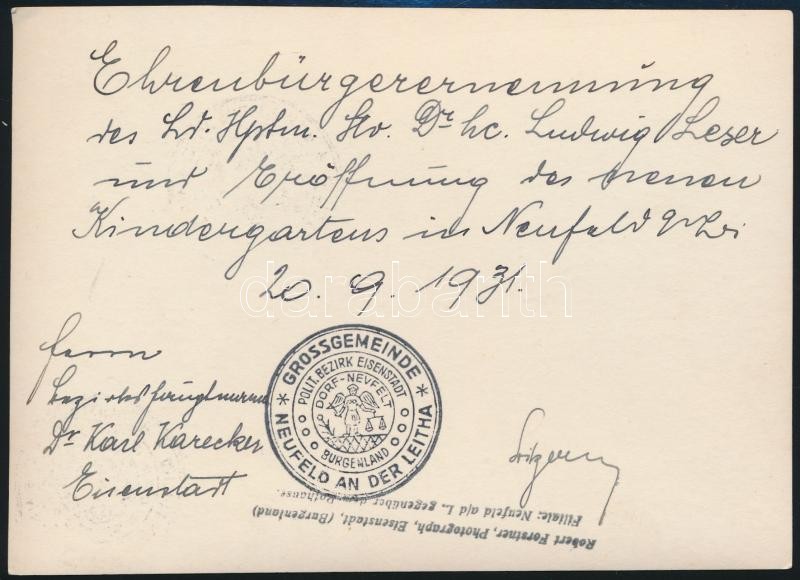 Ehrenbürgerernennung
des Ld. Hptm. Stv. Dr. hc. Ludwig Leser
und Eröffnung des neuen
Kindergartens in Neufeld
20. 9. 1931.
darabanth.com
Herrn
Bezirkshauptmann
Dr Karl Karecker
Eisenstadt
* GROSSGEMEINDE *
NEUFELD AN DER LEITHA
POLIT. BEZIRK EISENSTADT
DORF-NEVFELT
BURGENLAND
Robert Forstner, Photograph, Eisenstadt, (Burgenland)
Filiale: Neufeld a/d L. gegenüber dem Rathause.